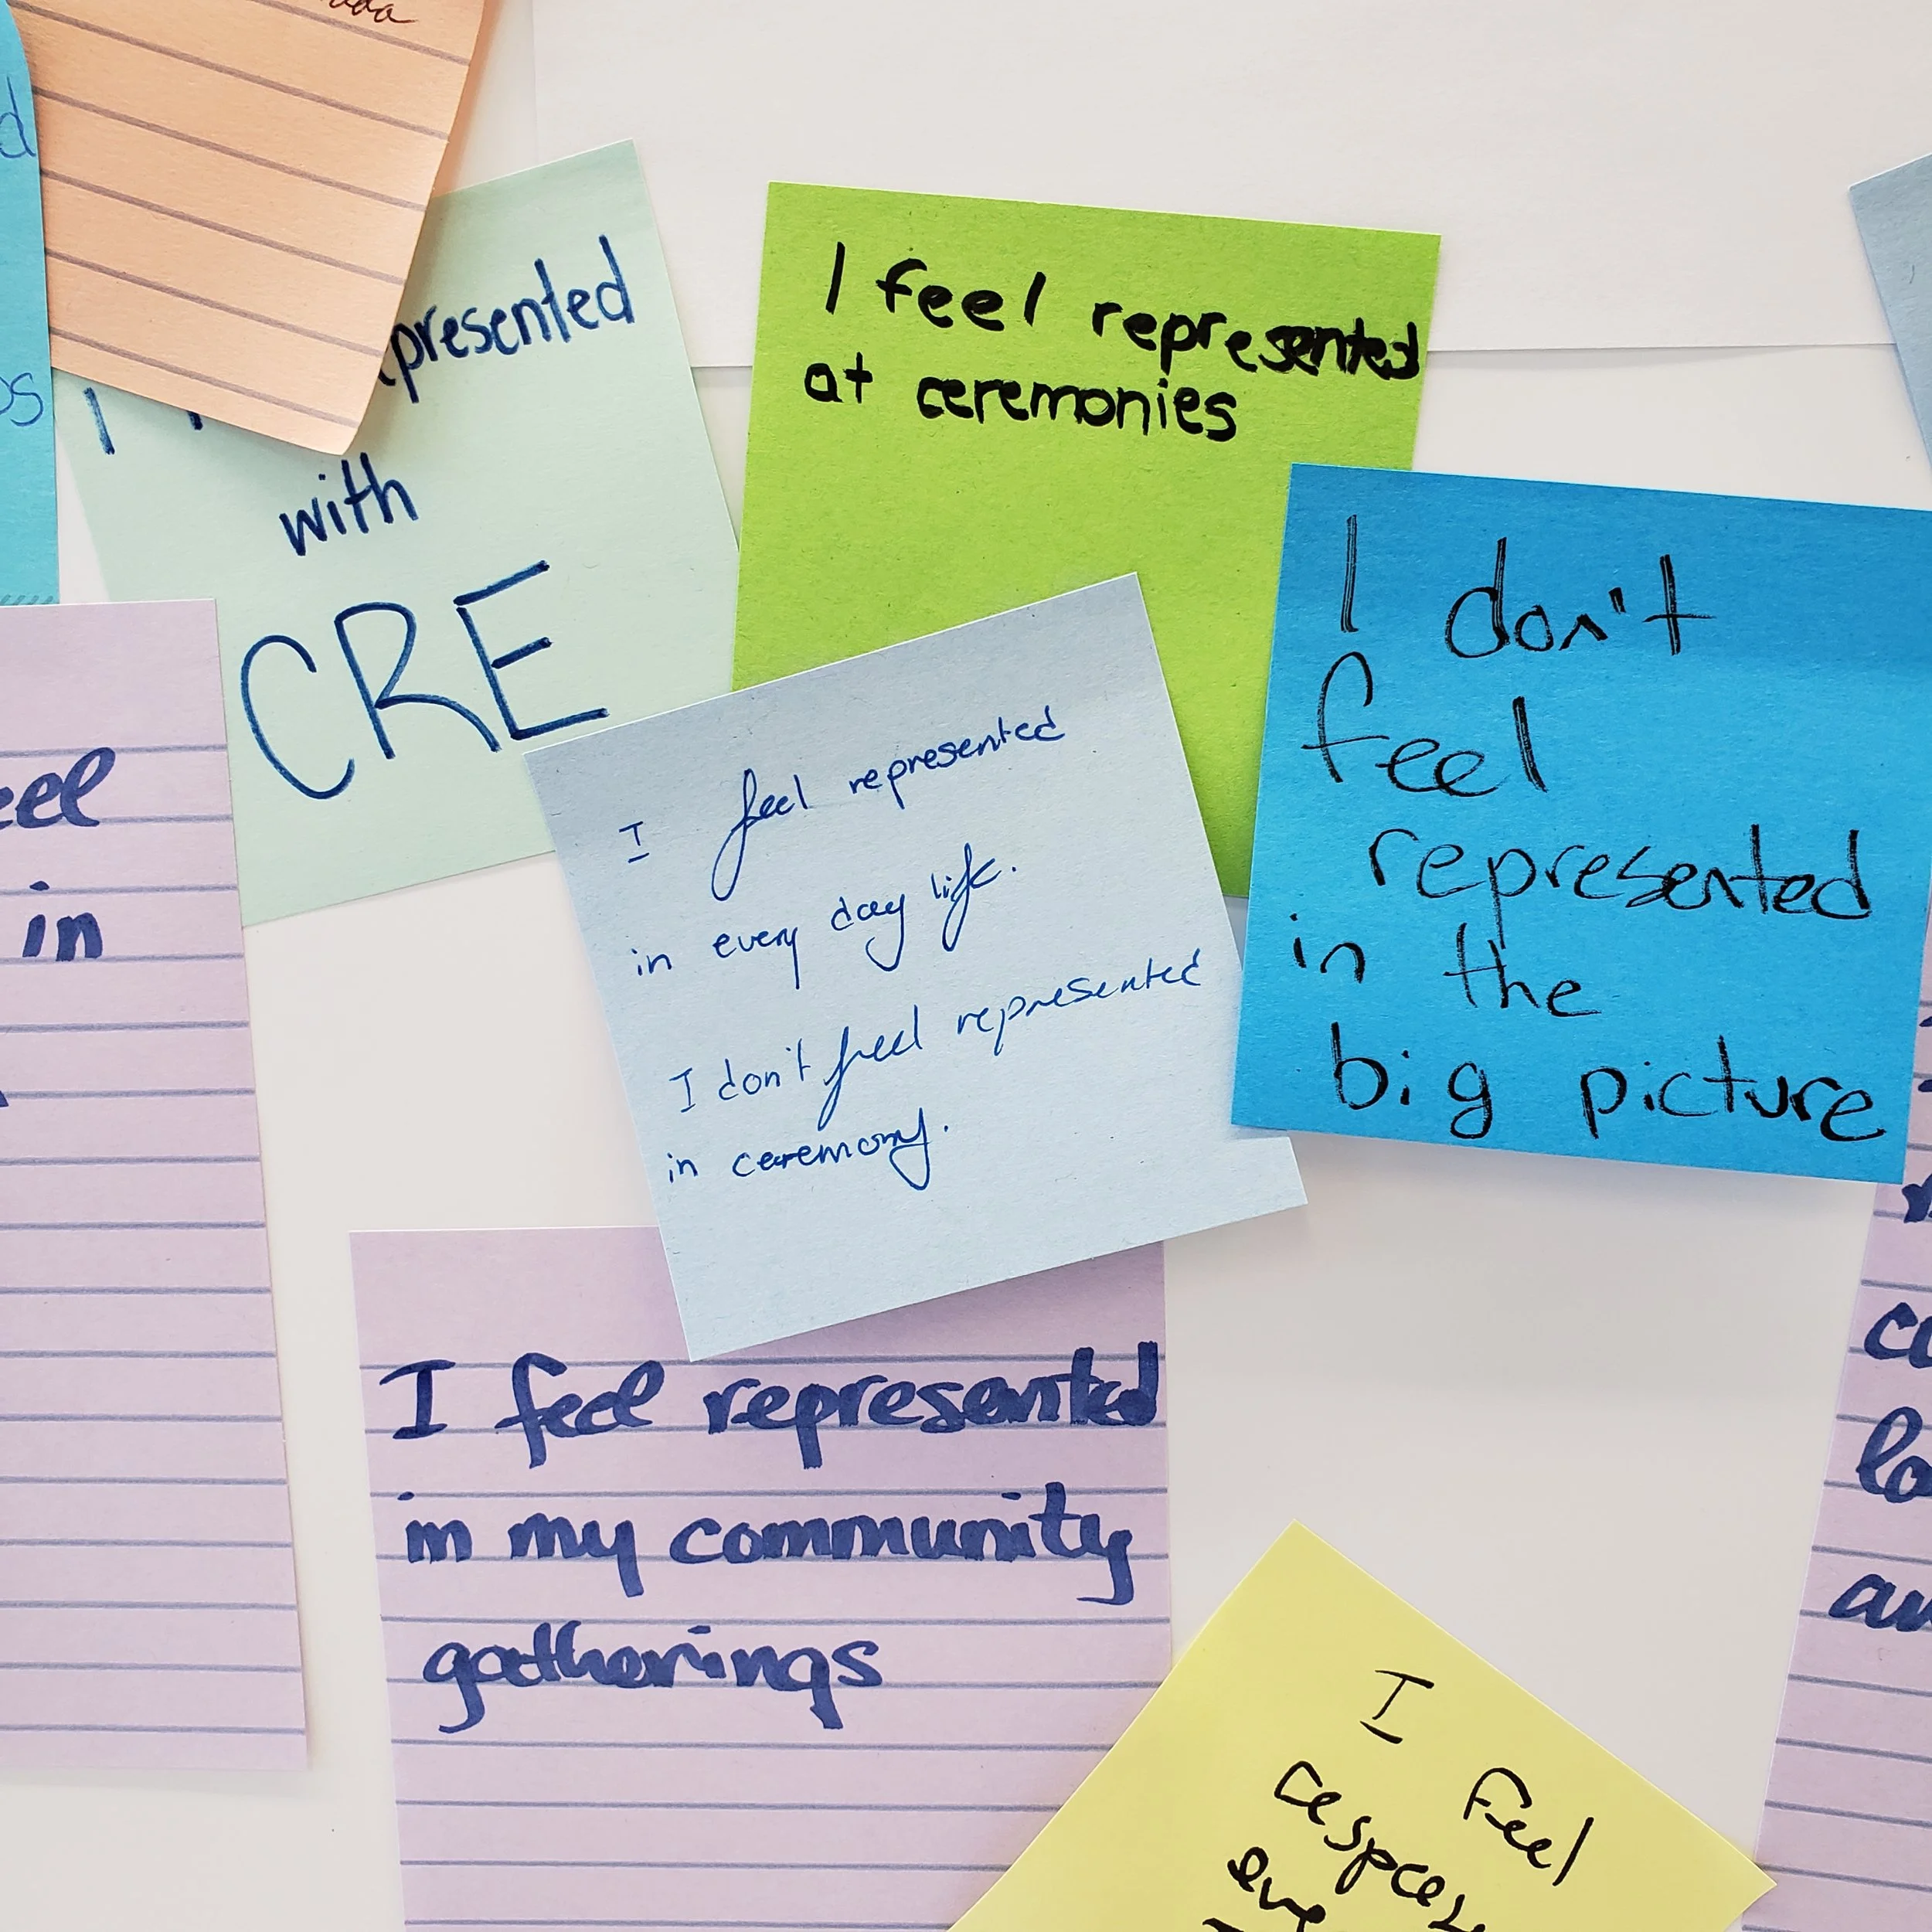 presented
with
CRE
I feel represented
at ceremonies
I don't
feel
represented
in the
big picture
I feel represented
in every day life.
I don't feel represented
in ceremony.
in
I feel represented
in my community
gatherings
I
feel